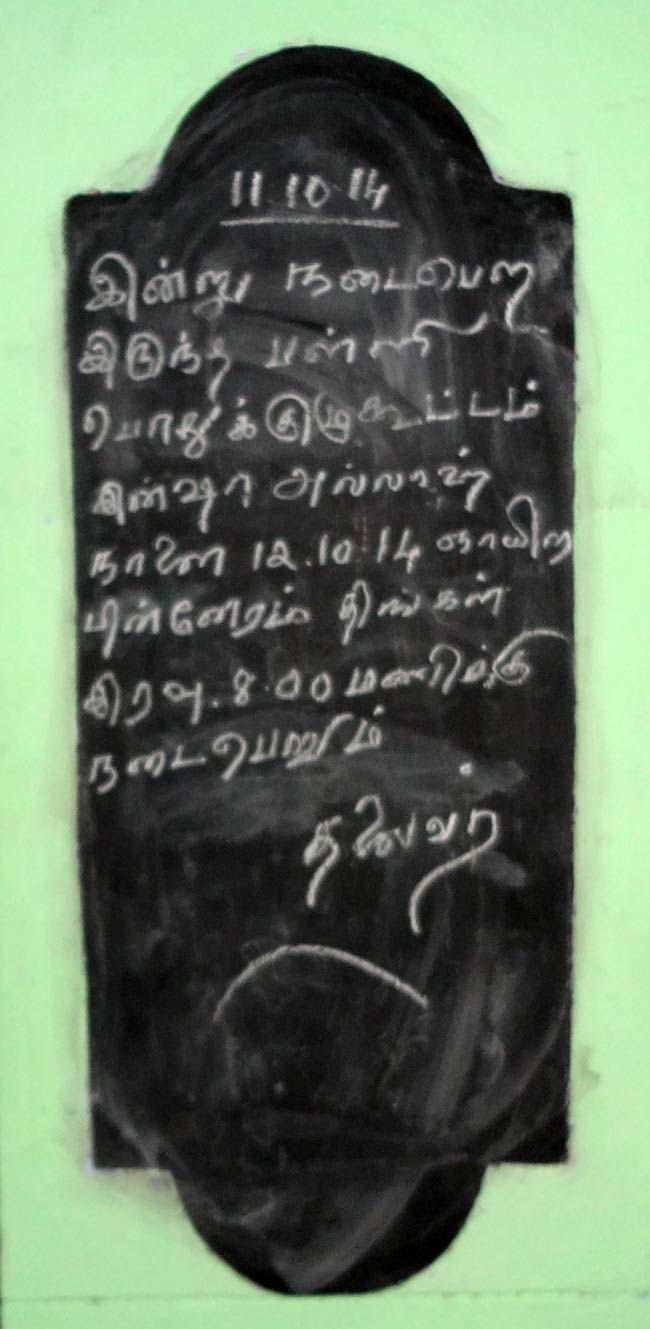 11.10.14
இன்று நடைபெற
இருந்த பள்ளி
பொதுக்குழு கூட்டம்
இன்ஷா அல்லாஹ்
நாளை 12.10.14 ஞாயிறு
பின்னேரம் திங்கள்
இரவு. 8.00 மணிக்கு
நடைபெறும்
தலைவர்